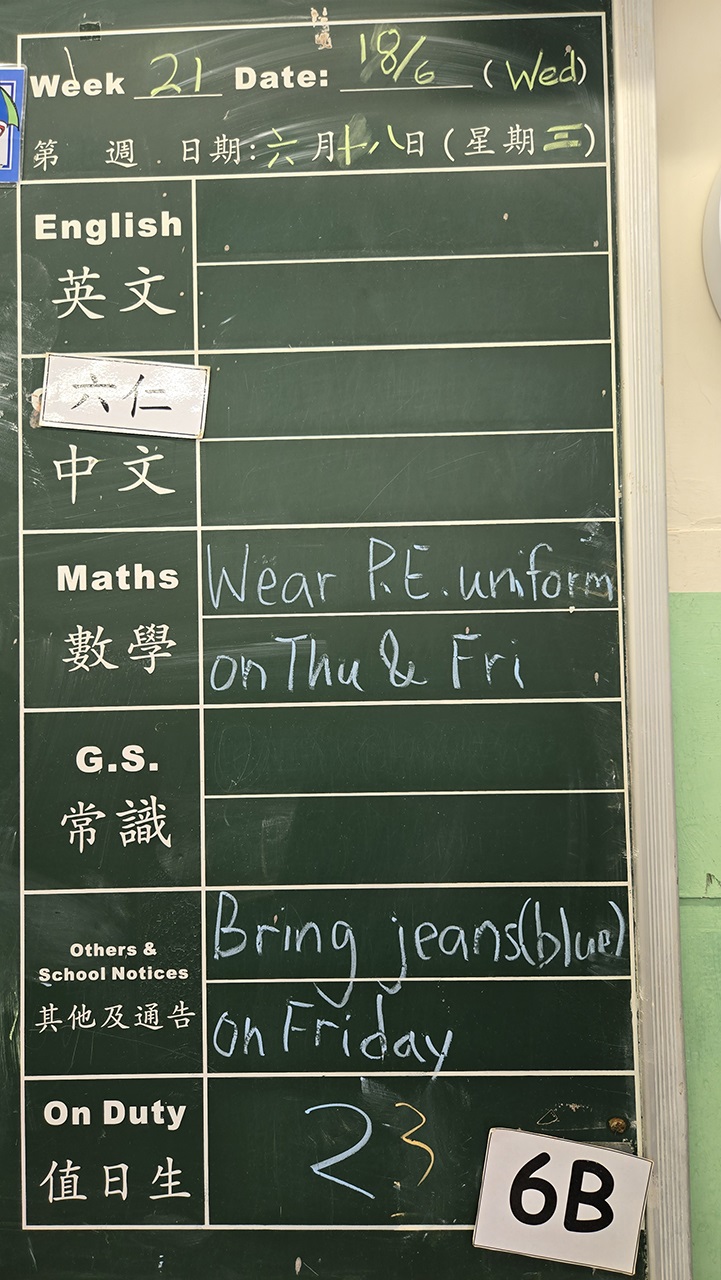 Week 21 Date: 18/6 (Wed)
第 週 日期:六月十八日(星期三)
English
英文
六仁
中文
Maths
數學
Wear P.E. uniform
on Thu & Fri
G.S.
常識
Others &
School Notices
其他及通告
Bring jeans(blue)
on Friday
On Duty
值日生
23
6B